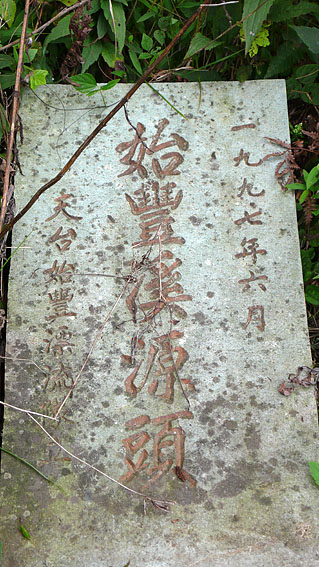 一九九七年六月
始豐溪源頭
天台始豐溪流